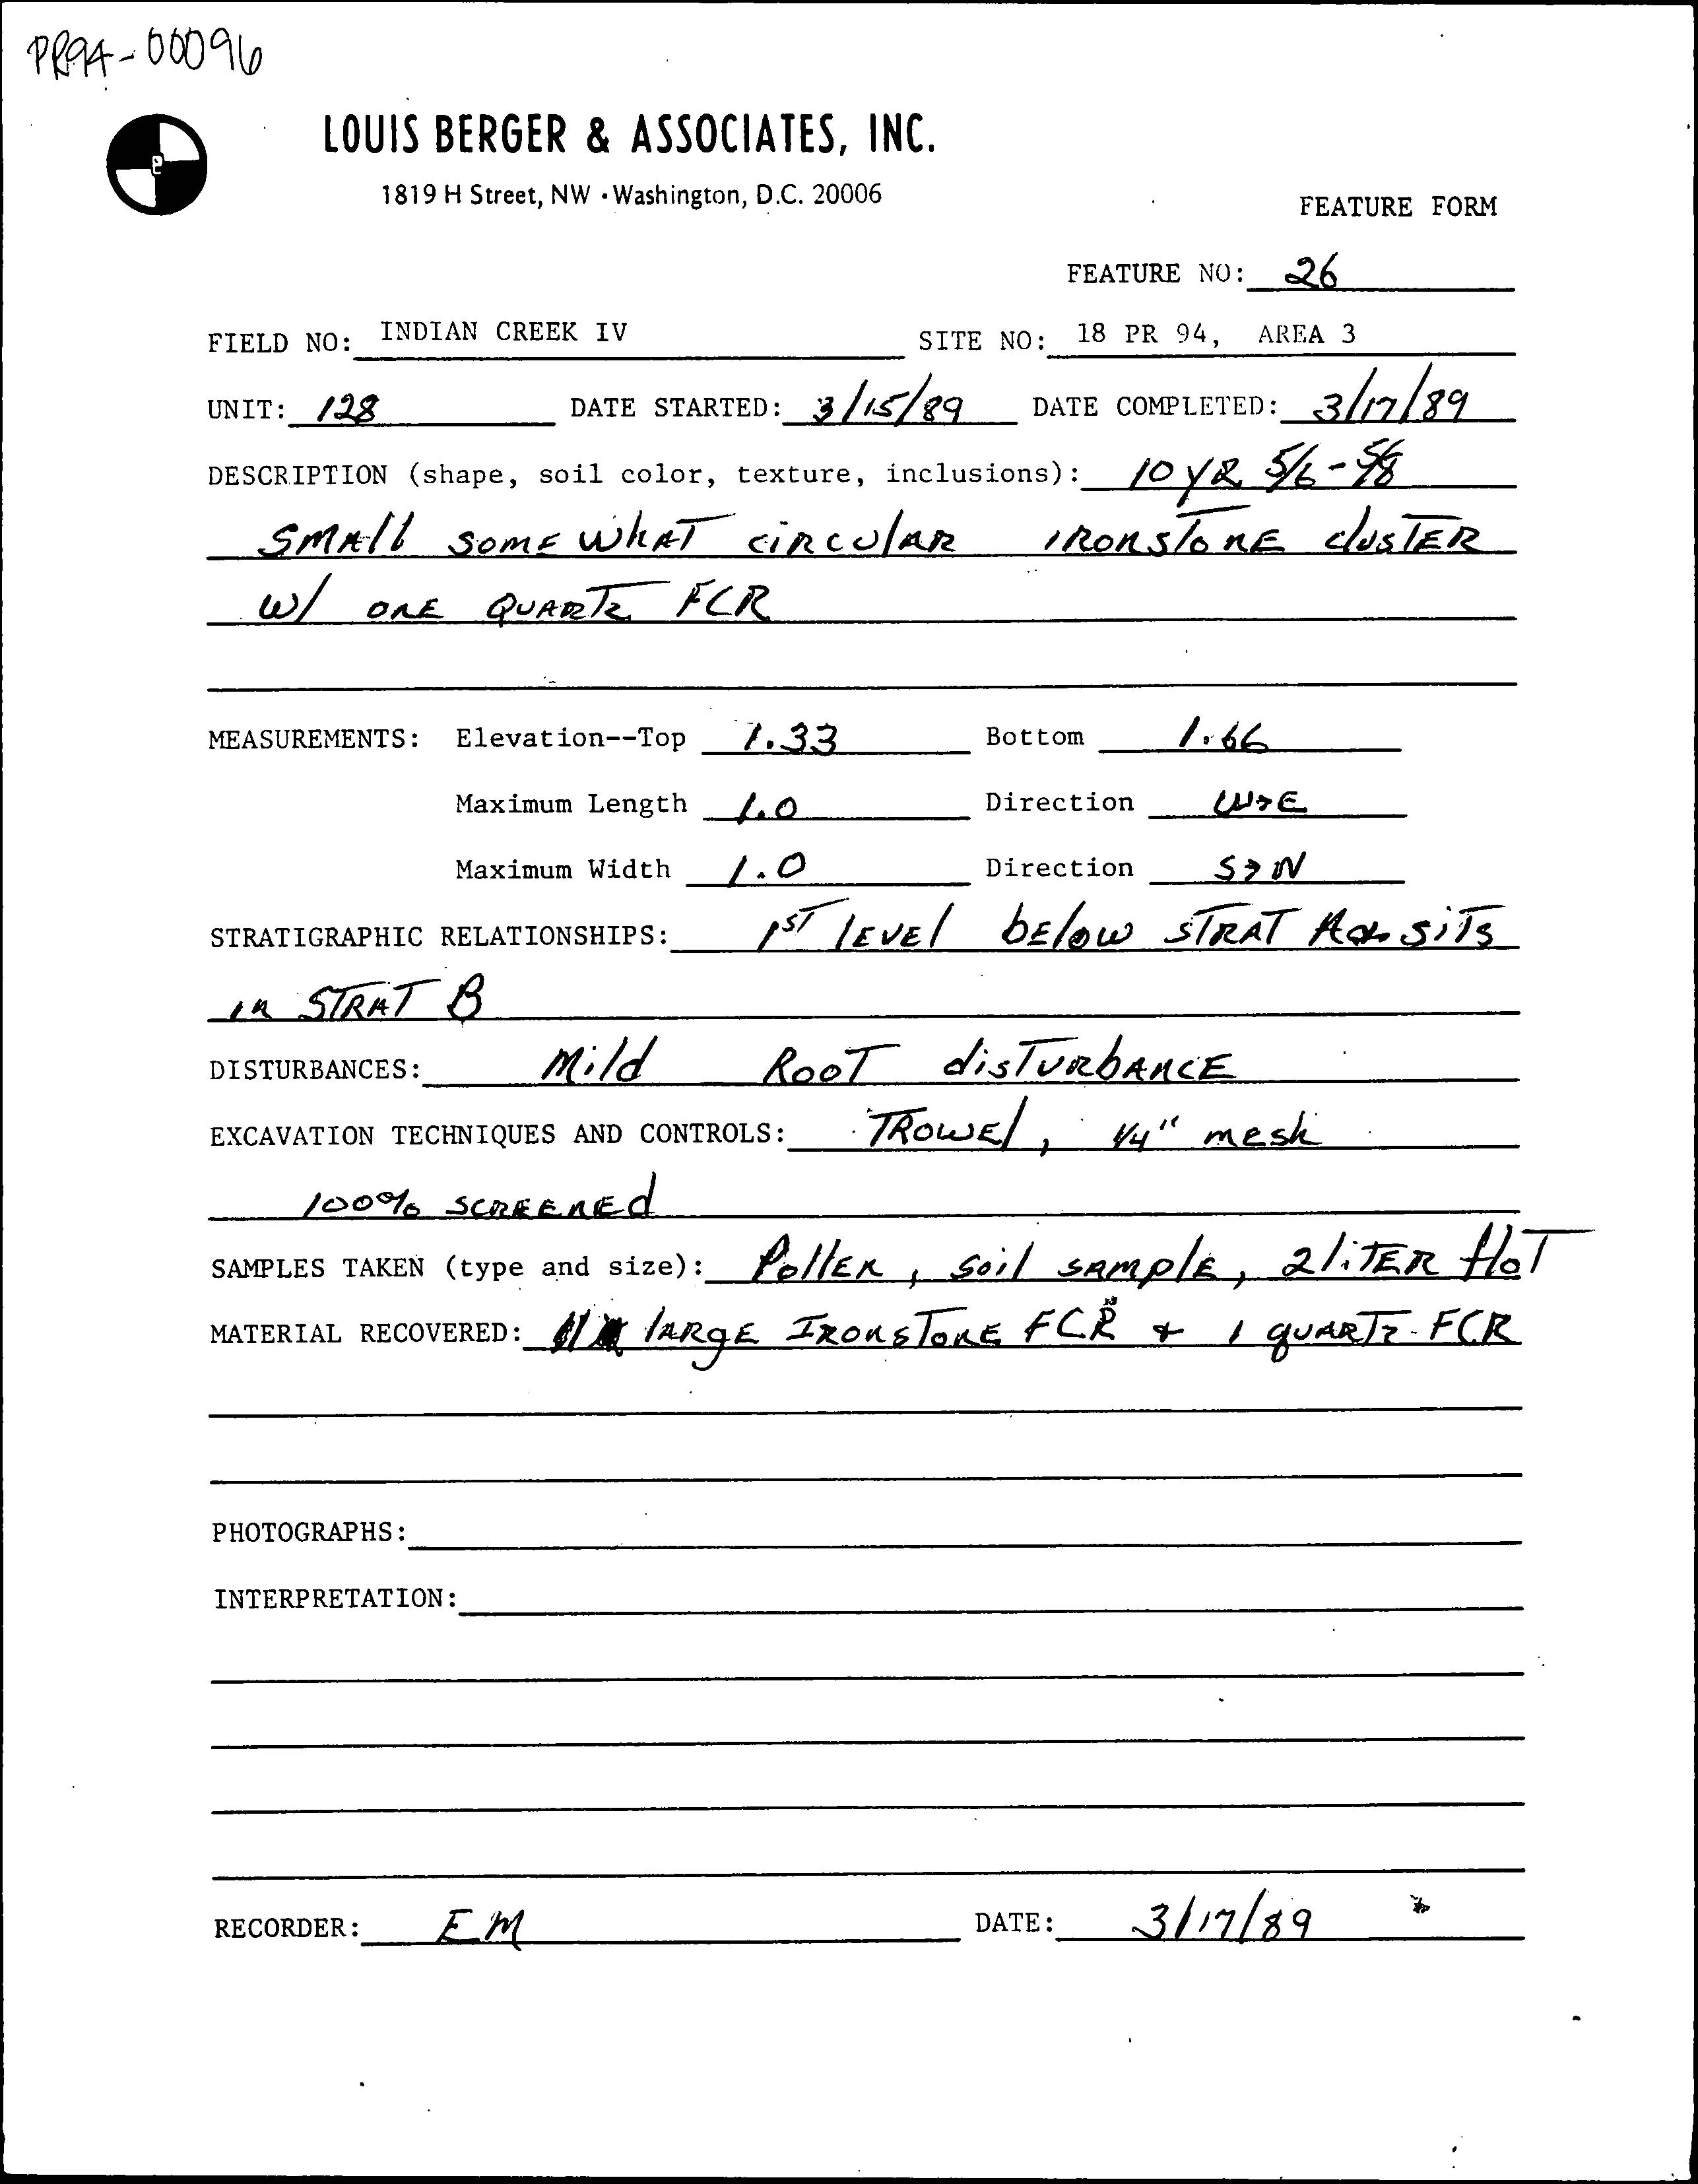 PR94-00096
LOUIS BERGER & ASSOCIATES, INC.
1819 H Street, NW · Washington, D.C. 20006
FEATURE FORM
FEATURE NO: 26
FIELD NO: INDIAN CREEK IV SITE NO: 18 PR 94, AREA 3
UNIT: 128 DATE STARTED: 3/15/89 DATE COMPLETED: 3/17/89
DESCRIPTION (shape, soil color, texture, inclusions): 10 YR 5/6 - 5/8
SMAll SOMEWhAT CiRCUlAR IRONSTONE clUSTER
W/ ONE QUARTZ FCR
MEASUREMENTS: Elevation--Top 1.33 Bottom 1.66
Maximum Length 1.0 Direction W→E
Maximum Width 1.0 Direction S→N
STRATIGRAPHIC RELATIONSHIPS: 1ST lEVEl bElow STRAT A SiTS
IN STRAT B
DISTURBANCES: Mild ROOT disTURbANCE
EXCAVATION TECHNIQUES AND CONTROLS: TROWEl, 1/4" mesh
100% SCREENEd
SAMPLES TAKEN (type and size): PollEN, Soil SAMplE, 2 liTER floT
MATERIAL RECOVERED: lARgE IRONSTONE FCR + 1 QUARTZ FCR
PHOTOGRAPHS:
INTERPRETATION:
RECORDER: EM DATE: 3/17/89